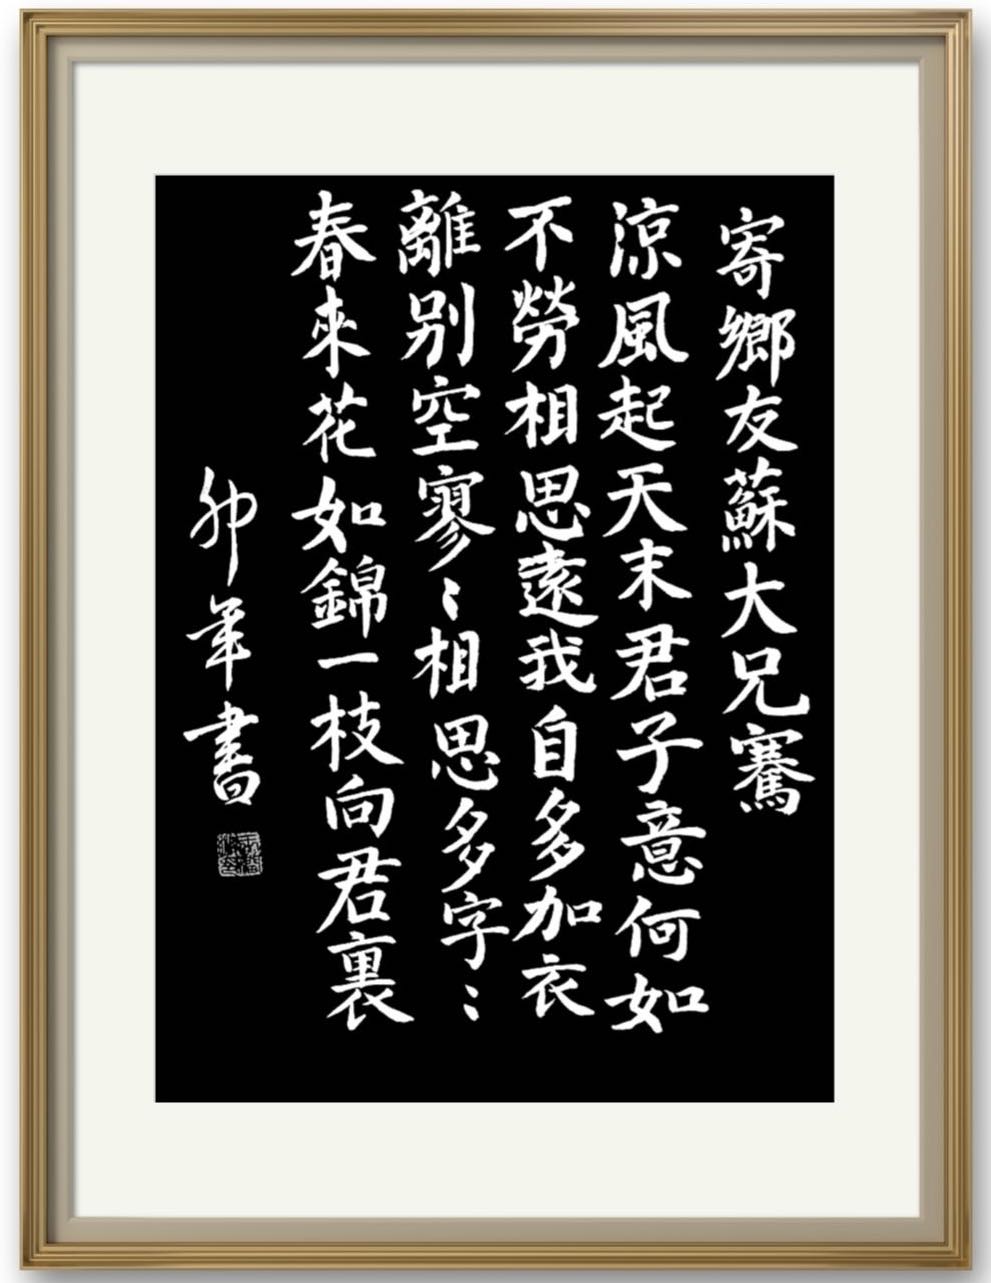 寄鄉友蘇大兄騫
涼風起天末君子意何如
不勞相思遠我自多加衣
離別空寥〻相思多字〻
春來花如錦一枝向君裏
卯年書